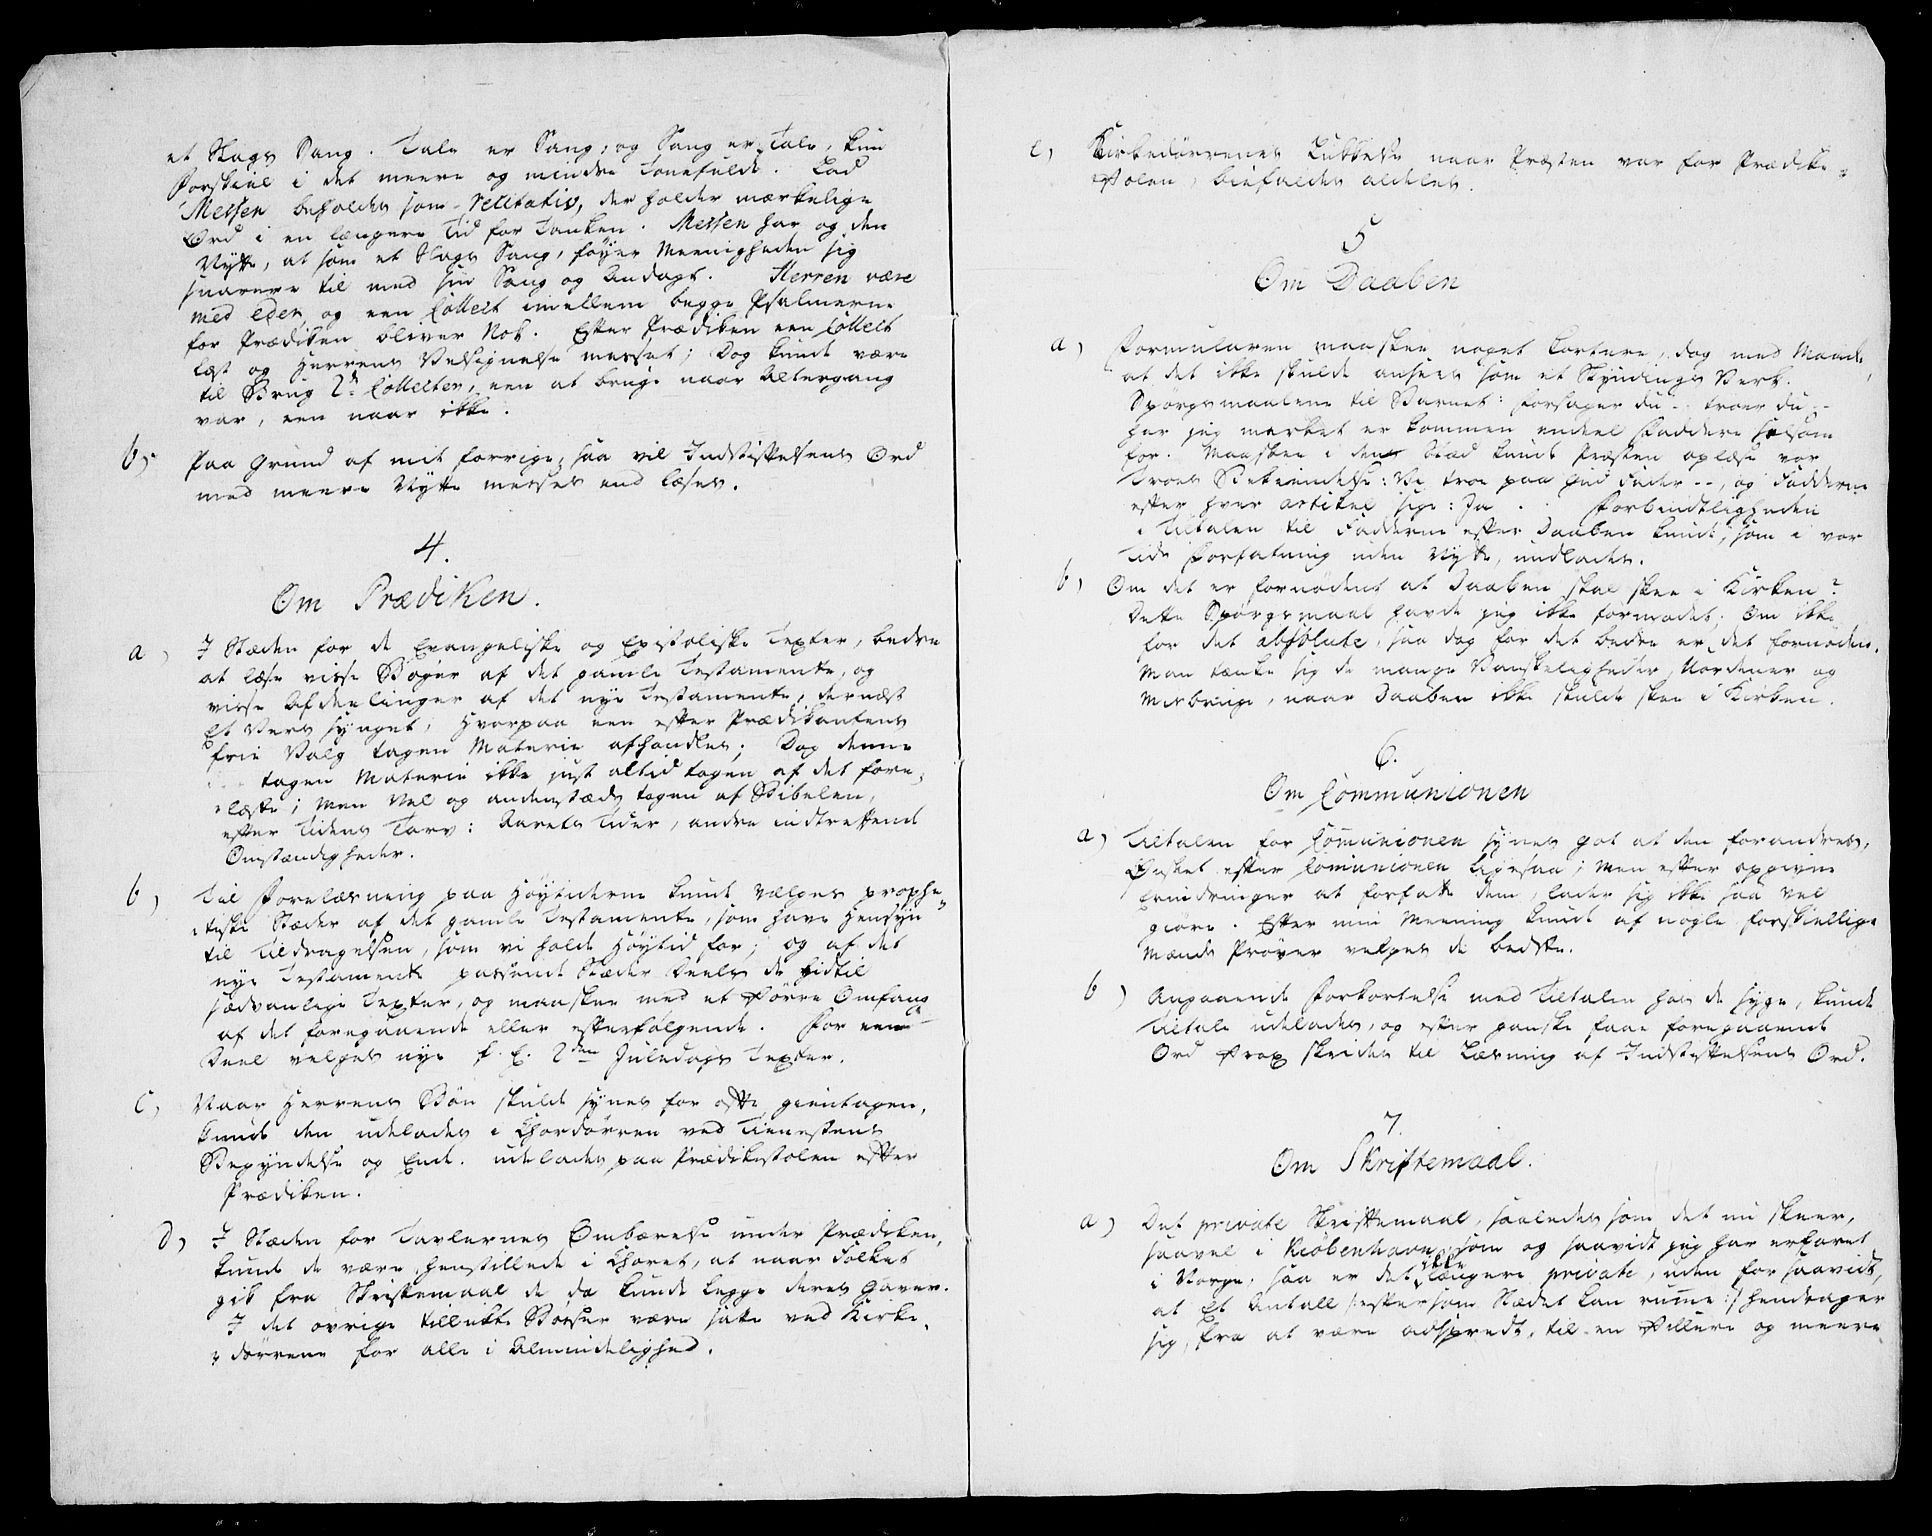 et Slags Sang. Tale er Sang, og Sang er Tale, kun
Forskiel i det meere og mindre Tonefulde. Lad
Messen beholdes som recitativ, der holder mærkelige
Ord i en længere Tid for Tanken. Messen har og den
Nytte, at som et Slags Sang, føyer Meenigheden sig
snarere til med sin Sang og Andagt. Herren være
med eder og een Collect imellem begge Psalmerne
for Prædiken bliver Nok. Efter Prædiken een Collect
læst og Herrens Velsignelse messet; Dog kunde være
til Brug 2de Collecter, een at bruge naar Altergang
var, een naar ikke.
b, Paa Grund af mit forrige, saa vil Indstiftelsens Ord
med meere Nytte messes end læses.
4.
Om Prædiken.
a, I Stæden for de Evangeliske og Epistoliske Texter, bedre
at læse visse Bøger af det gamle Testamente, og
visse Afdeelinger af det nye Testamente, dernæst
Et Vers synget, hvorpaa een efter Prædikantens
frie Valg tagen Materie afhandles; Dog denne
tagen Materie ikke just altid tagen af det fore-
-læste; Men Vel og andenstæds tagen af Bibelen,
efter Tidens Tarv: Aarets Tider, andre indtreffende
Omstændigheder.
b, Til Forelæsning paa Høytiderne kunde vælges prophe-
-tiske Stæder af det gamle Testamente, som have Hensyn
til Tildragelsen, som vi holde Høytid for; og af det
nye Testamente passende Stæder Deels de hidtil
sædvanlige Texter, og maaskee med et større Omfang
af det foregaaende eller efterfølgende. For een
Deel velges nye f. E. 2den Juledags Texter.
c, Naar Herrens Bøn skulde synes for ofte gientagen,
kunde den udelades i Chordørren ved Tienestens
Begyndelse og Ende. udelades paa Prædikestolen efter
Prædiken.
d, I Stæden for Tavlernes Ombærelse under Prædiken,
kunde de være henstillede i Choret, at naar Folket
gik fra Skriftemaal de da kunde legge deres Gaver.
I det øvrige tillukte Bøsser være satte ved Kirke-
-dørrene for alle i Almindelighed.
e, Kirkedørrenes Lukkelse naar Præsten var for Prædike-
-stolen, biefaldes aldeles.
5
Om Daaben
a, Formularen maaskee noget kortere, dog med Maade,
at det ikke skulde ansees som et Skyndings Verk.
Spørgsmaalene til Barnet: forsager du -- troer du --
har jeg merket er kommen endeel Faddere selsom
for. Maaskee i dens Stæd kunde Præsten oplæse vor
Troes Bekiendelse: Vi troe paa Gud Fader --, og Fadderne
efter hver artikel sige: Ja. Forbindtligheden
i Tiltalen til Fadderne efter Daaben kunde, som i vor
Tids Forfatning uden Nytte, undlades.
b, Om det er fornødent at Daaben skal skee i Kirken?
Dette Spørgsmaal havde jeg ikke formodet; Om ikke
for det absolute, saa dog for det bedre er det fornøden.
Man tænke sig de mange Vanskeligheder, Uordener og
Misbruge, naar Daaben ikke skulde skee i Kirken.
6.
Om Communionen
a, Tiltalen for Communionen synes got at den forandres,
Ønsket efter Communionen ligesaa; Men efter opgivne
Erindringer at forfatte dem, lader sig ikke saa vel
giøre. Efter min Meening kunde af nogle forskiellige
Mænds Prøver velges de bedste.
b, Angaaende Forkortelse med Tiltalen hos de syge, kunde
Tiltale udelades, og efter ganske faae foregaaende
Ord strax skrides til Læsning af Indstiftelsens Ord.
7.
Om Skriftemaal.
a, Det private Skriftemaal, saaledes som det nu skeer,
saavel i Kiøbenhavn, som og saavidt jeg har erfaret
i Norge, saa er det ikke længere private, uden for saavidt,
at Et Antall /:eftersom Stædet kan rumme:/ hendrager
sig, fra at være adspredt, til en stillere og meere